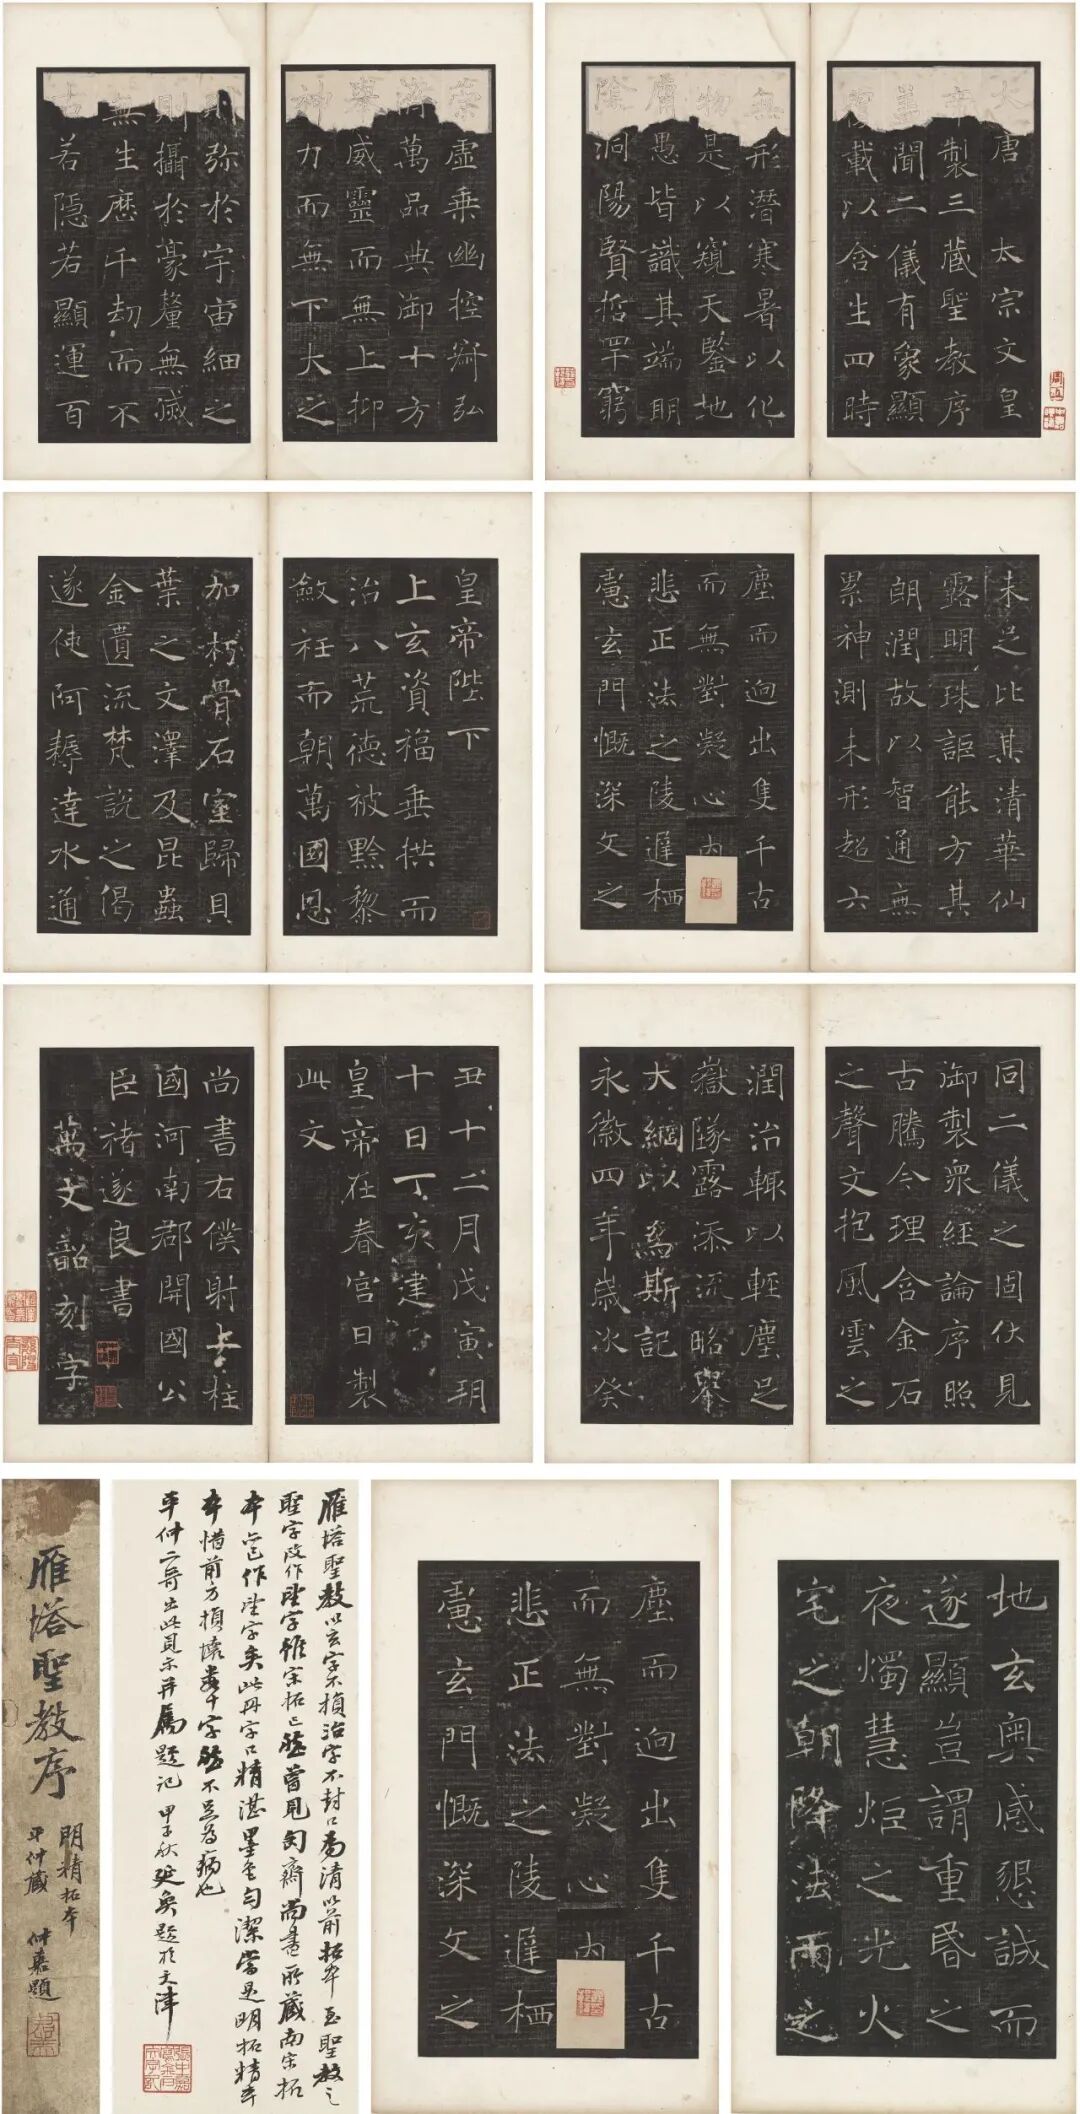 大唐太宗文皇
帝製三藏聖教序
蓋聞二儀有象顯
覆載以含生四時
無形潛寒暑以化
物是以窺天鑒地
庸愚皆識其端明
陰洞陽賢哲罕窮
崇虛乘幽控寂弘
濟萬品典御十方
舉威靈而無上抑
神力而無下大之
則弥於宇宙細之
則攝於豪釐無滅
無生歷千劫而不
古若隱若顯運百
未足比其清華仙
露明珠詎能方其
朗潤故以智通無
累神測未形超六
塵而迥出隻千古
而無對凝心內
悲正法之陵遲栖
慮玄門慨深文之
皇帝陛下
上玄資福垂拱而
治八荒德被黔黎
斂衽而朝萬國恩
加朽骨石室歸貝
葉之文澤及昆蟲
金匱流梵說之偈
遂使阿耨達水通
同二儀之固伏見
御製眾經論序照
古騰今理含金石
之聲文抱風雲之
潤治輒以輕塵足
嶽墜露添流略舉
大綱以為斯記
永徽四年歲次癸
丑十二月戊寅朔
十日丁亥建
皇帝在春宮日製
此文
尚書右僕射上柱
國河南郡開國公
臣褚遂良書
萬文韶刻字
地玄奧感懇誠而
遂顯豈謂重昏之
夜燭慧炬之光火
宅之朝降法雨之
塵而迥出隻千古
而無對凝心內
悲正法之陵遲栖
慮玄門慨深文之
雁塔聖教以玄字不損治字不封口為清以前拓本至聖教之
聖字改作𦔻字雖宋拓已然曾見匋齋尚書所藏南宋拓
本已作字矣此冊字口精湛墨色勻潔當是明拓精本
本惜前方損壞數十字然不足為病也
平仲二哥出此見示并屬題記 甲子秋 延奐題於天津
雁塔聖教序
明精拓本
平仲藏 仲嘉題